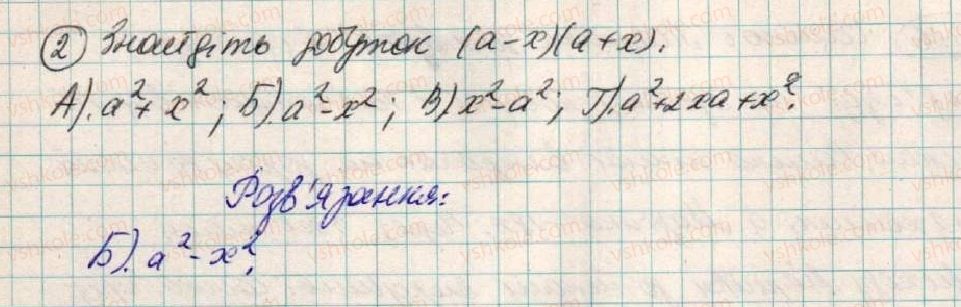 ② Знайдіть добуток (a-x)(a+x).
А). a²+x²; Б). a²-x²; В). x²-a²; Г). a²+2xa+x².
Розв'язання:
Б). a²-x².